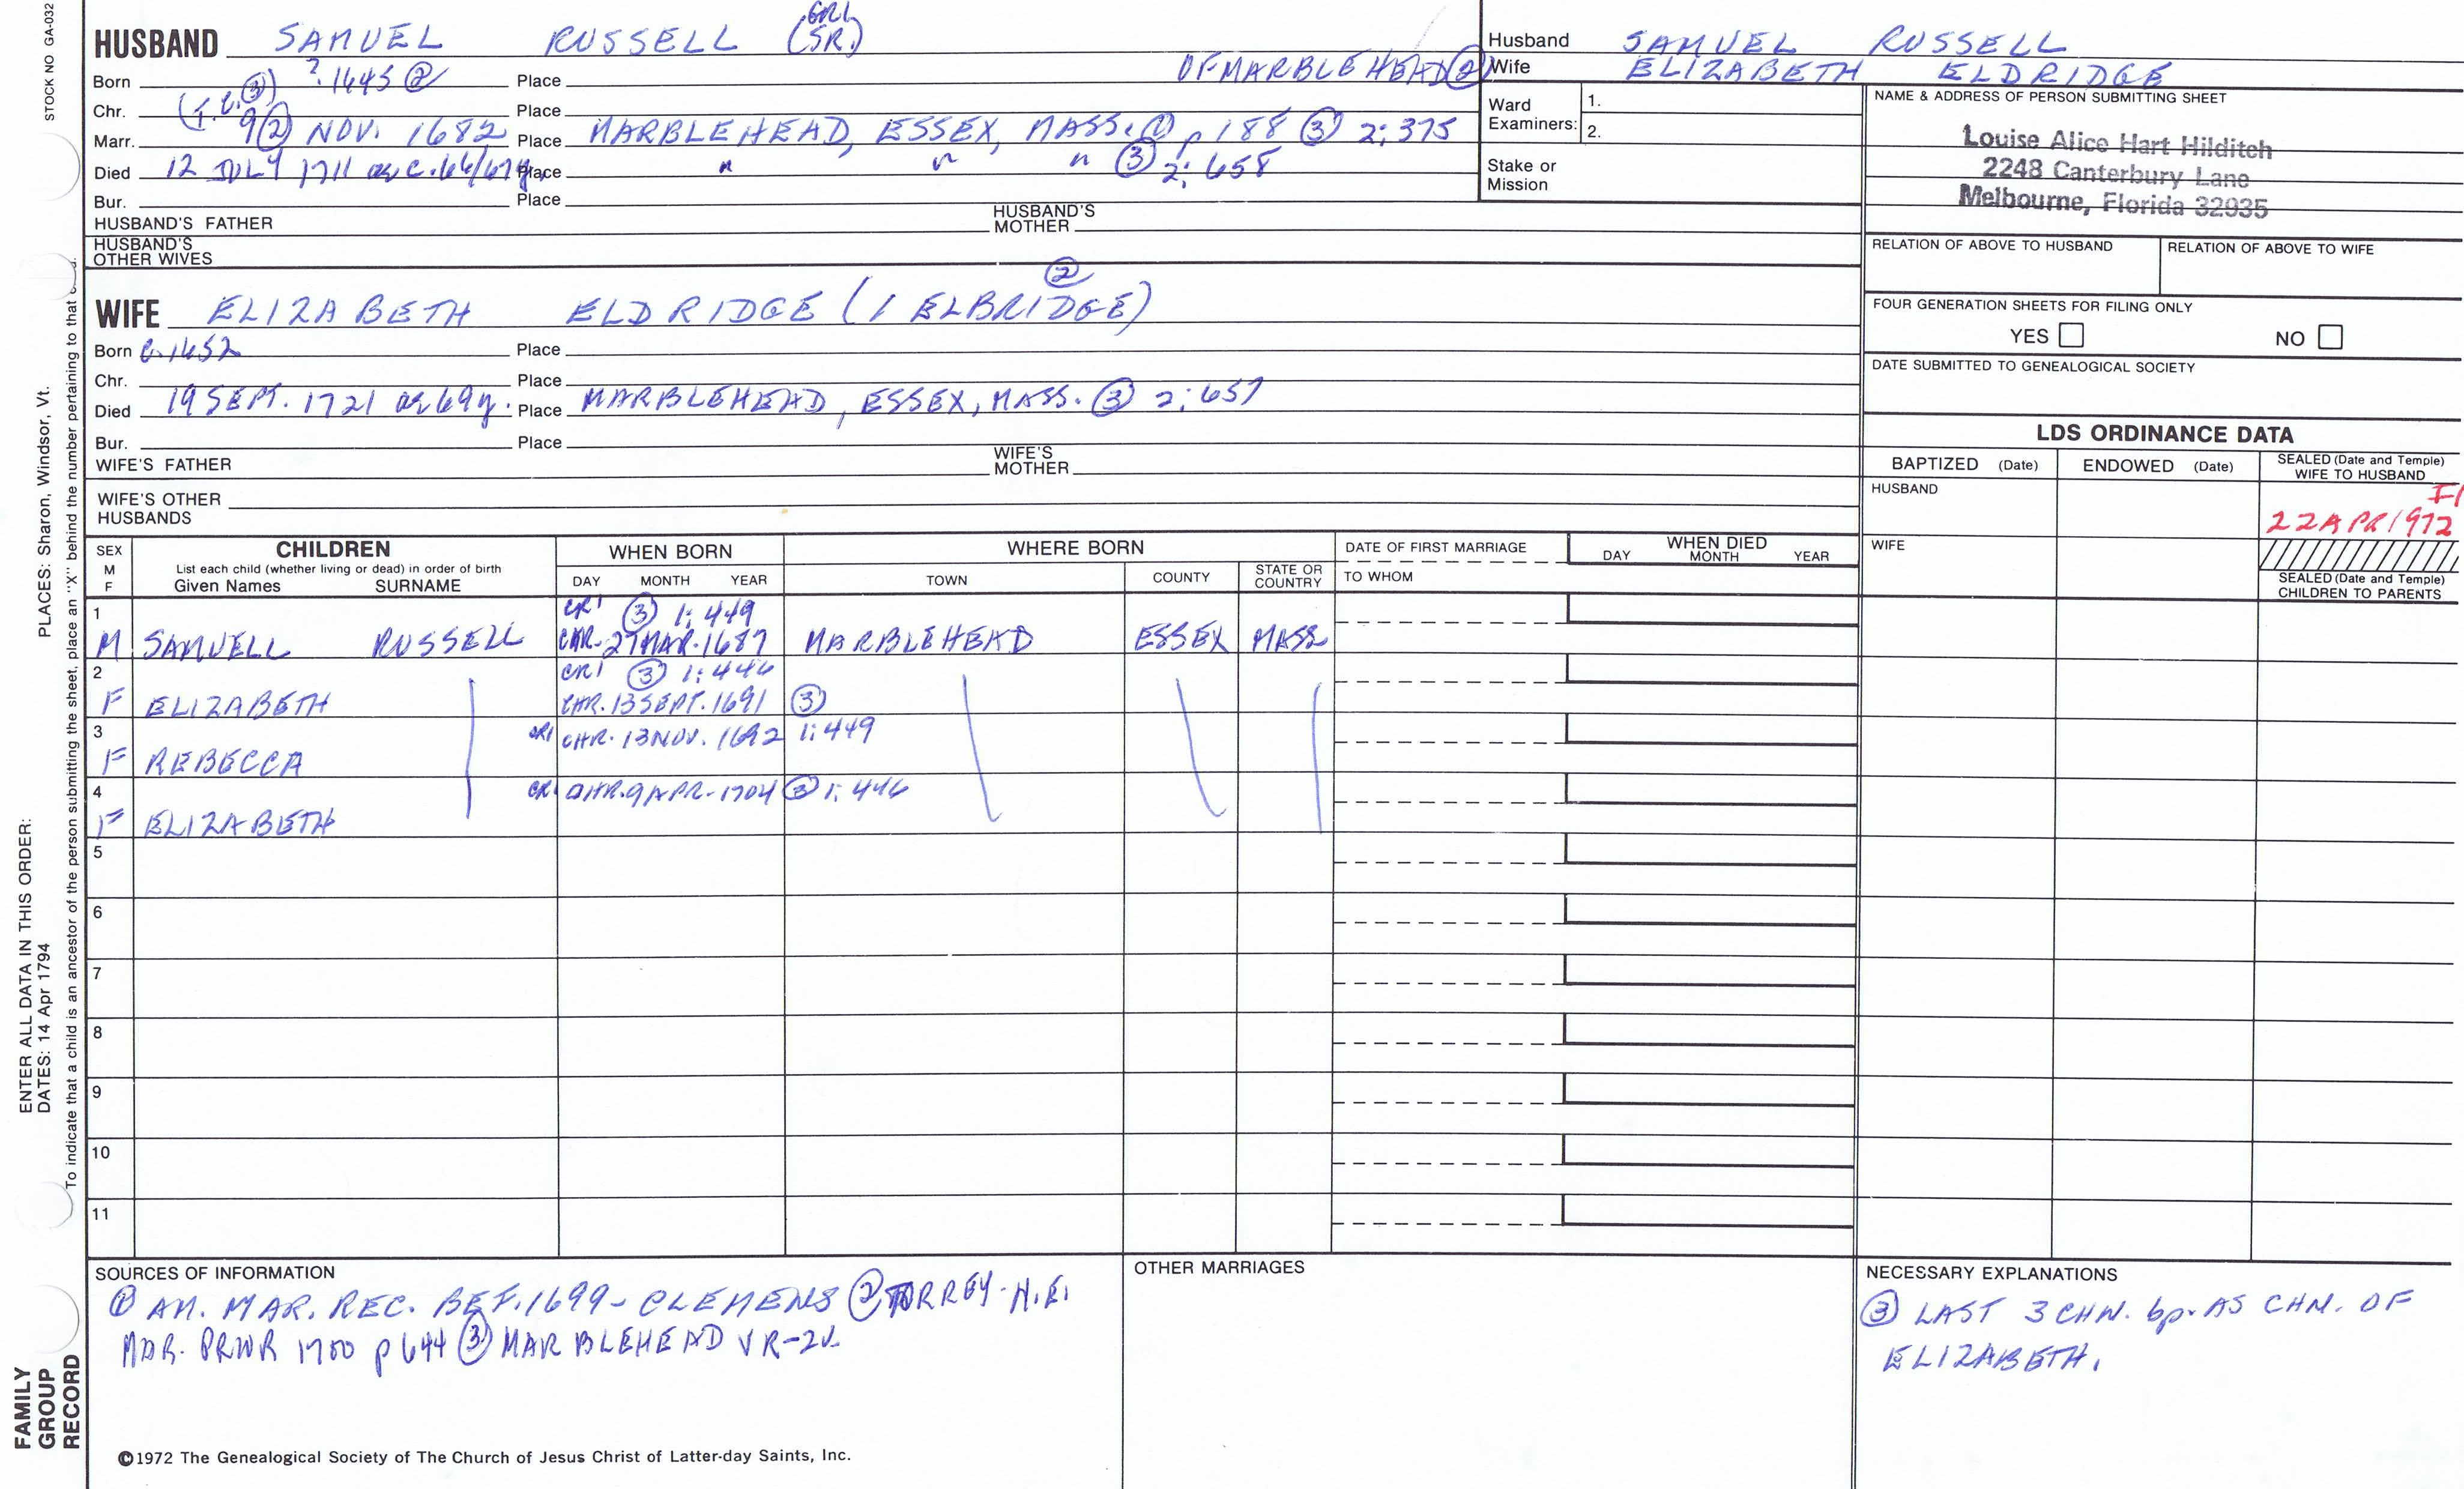 STOCK NO GA-032
PLACES: Sharon, Windsor, Vt.
ENTER ALL DATA IN THIS ORDER:
DATES: 14 Apr 1794
To indicate that a child is an ancestor of the person submitting the sheet, place an "X" behind the number pertaining to that
FAMILY
GROUP
RECORD
GR1
HUSBAND SAMUEL RUSSELL (SR.)
Born ?1645 ② Place OF MARBLEHEAD ②
Chr. Place
Marr. 9 ② NOV. 1682 Place MARBLEHEAD, ESSEX, MASS. ① p 188 ③ 2:375
Died 12 JULY 1711 ae c.66/67y. Place " " " ③ 2:658
Bur. Place
HUSBAND'S FATHER HUSBAND'S MOTHER
HUSBAND'S OTHER WIVES
②
WIFE ELIZABETH ELDRIDGE (/ ELBRIDGE)
Born c.1652 Place
Chr. Place
Died 19 SEPT. 1721 ae 69y. Place MARBLEHEAD, ESSEX, MASS. ③ 2:657
Bur. Place
WIFE'S FATHER WIFE'S MOTHER
WIFE'S OTHER HUSBANDS
Husband SAMUEL RUSSELL
Wife ELIZABETH ELDRIDGE
Ward Examiners: 1.
2.
Stake or Mission
NAME & ADDRESS OF PERSON SUBMITTING SHEET
Louise Alice Hart Hilditch
2248 Canterbury Lane
Melbourne, Florida 32935
RELATION OF ABOVE TO HUSBAND RELATION OF ABOVE TO WIFE
FOUR GENERATION SHEETS FOR FILING ONLY
YES NO
DATE SUBMITTED TO GENEALOGICAL SOCIETY
LDS ORDINANCE DATA
BAPTIZED (Date) ENDOWED (Date) SEALED (Date and Temple) WIFE TO HUSBAND
HUSBAND
22 APR 1972
WIFE
SEALED (Date and Temple) CHILDREN TO PARENTS
SEX M F
CHILDREN
List each child (whether living or dead) in order of birth
Given Names SURNAME
WHEN BORN
DAY MONTH YEAR
WHERE BORN
TOWN COUNTY STATE OR COUNTRY
DATE OF FIRST MARRIAGE
TO WHOM
WHEN DIED
DAY MONTH YEAR
1 CR1 ③ 1:449
M SAMUELL RUSSELL CHR. 27 MAR. 1687 MARBLEHEAD ESSEX MASS
2 CR1 ③ 1:446
F ELIZABETH CHR. 13 SEPT. 1691 ③
3 CR1 CHR. 13 NOV. 1692 1:449
F REBECCA
4 CR1 CHR. 9 APR. 1704 ③ 1:446
F ELIZABETH
5
6
7
8
9
10
11
SOURCES OF INFORMATION
① AM. MAR. REC. BEF. 1699 - CLEMENS ② TORREY - N.E.
MAR. PRIOR 1700 p 644 ③ MARBLEHEAD VR-2V.
OTHER MARRIAGES
NECESSARY EXPLANATIONS
③ LAST 3 CHN. bp. AS CHN. OF
ELIZABETH.
©1972 The Genealogical Society of The Church of Jesus Christ of Latter-day Saints, Inc.